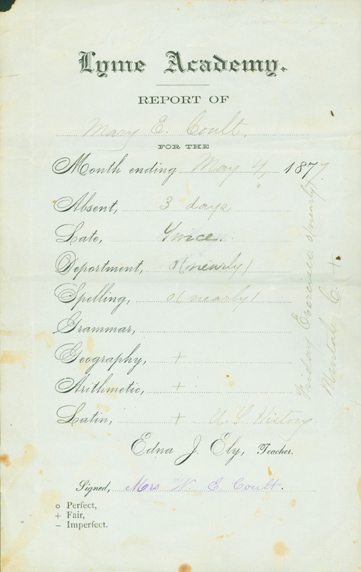 Lyme Academy.
REPORT OF
Mary E. Coult.
FOR THE
Month ending May 4, 1877
Absent, 3 days
Late, Twice.
Deportment, (nearly)
Spelling, (nearly)
Grammar,
Geography, +
Arithmetic, +
Latin, + U. S. History
Edna J. Ely, Teacher.
Signed, Mrs W. E Coult.
o Perfect,
+ Fair,
– Imperfect.
Friday Exercises (nearly)